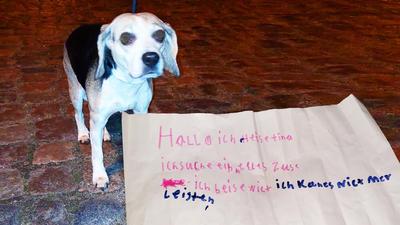 HALLo ich Heise tina
ichsuche ein Zuse
ich beise Nict ich Kanes Nict Mer
Leisten,